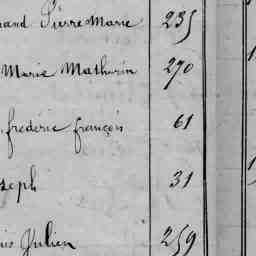 Pierre Marie 235
Marie Mathurin 270
frederic françois 61
seph 31
Julien 259